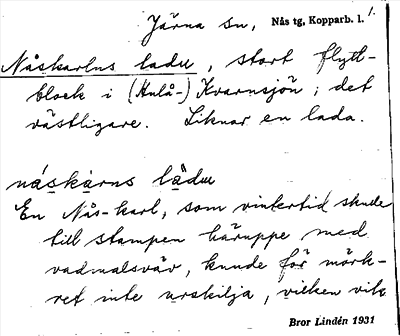 Järna sn, Nås tg, Kopparb. l. 1.
Nåskarlns ladu, stort flytt-
block i (Hulå-) Kvarnsjön; det
västligare. Liknar en lada.
näskàrns làdu
En Nås-karl, som vintertid skulle
till stampen häruppe med
vadmalsväv, kunde för mörk-
ret inte urskilja, vilken vik
Bror Lindén 1931